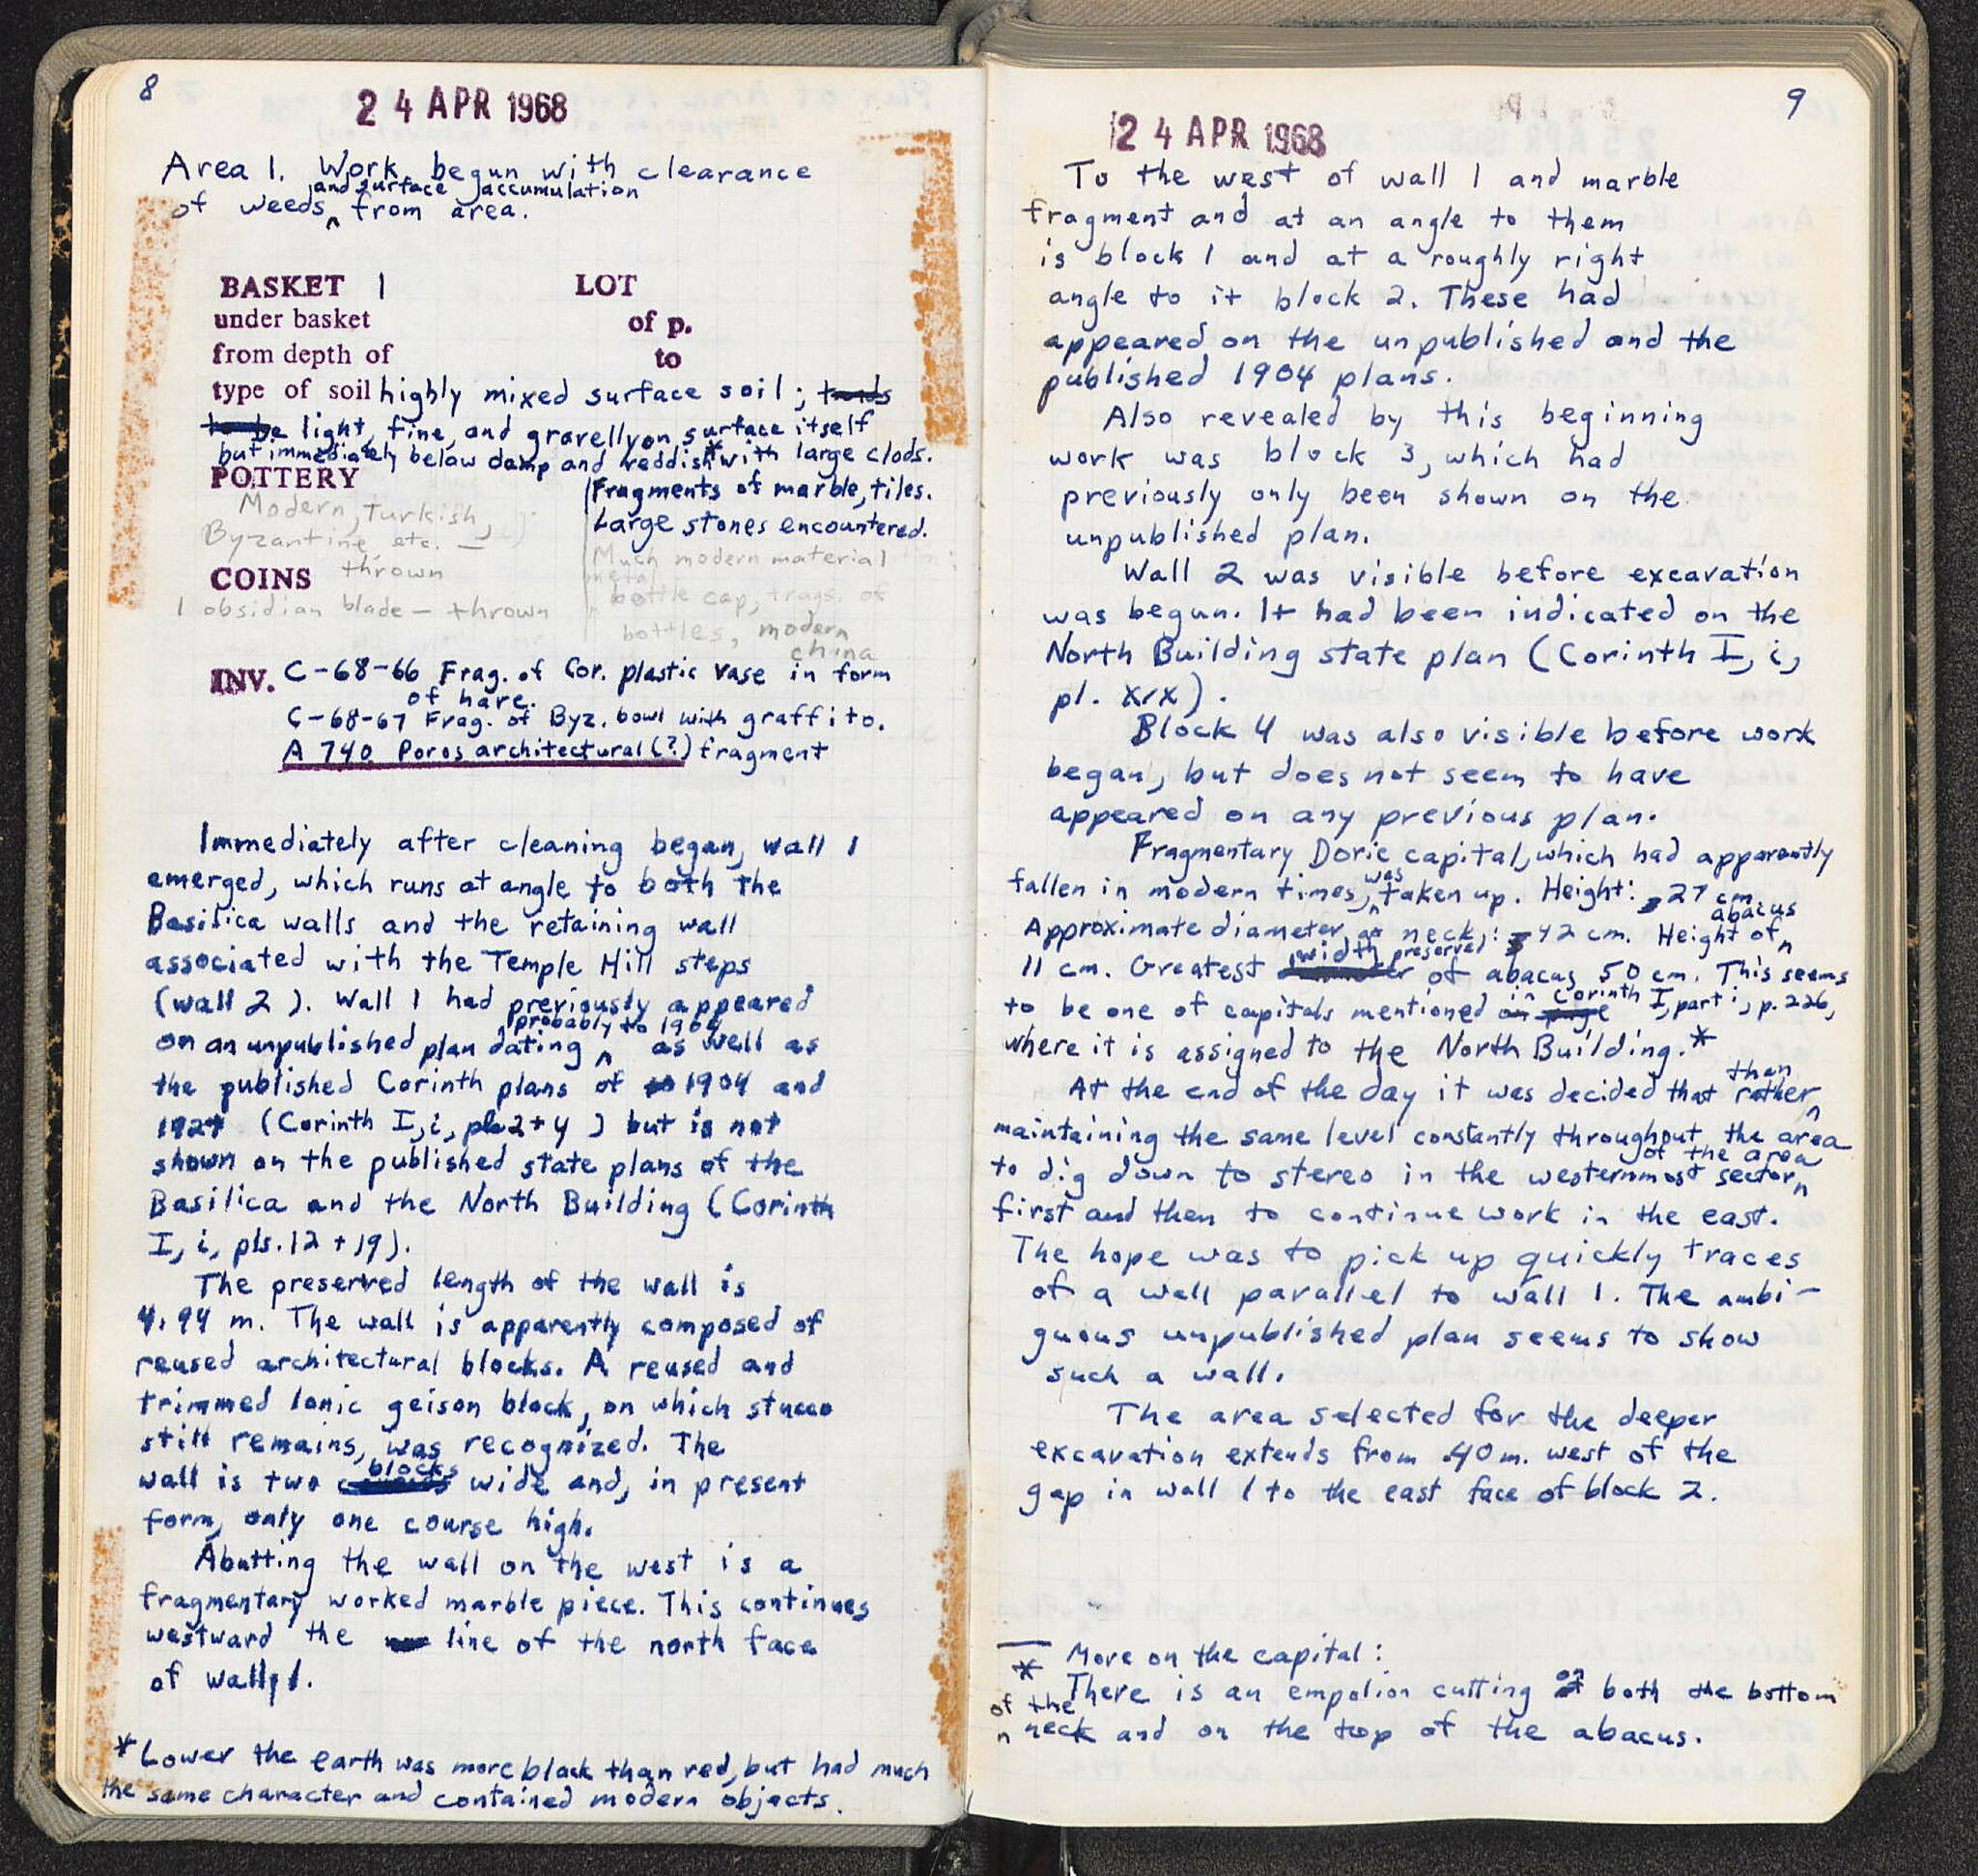 8
24 APR 1968
Area 1. Work begun with clearance
and surface accumulation
of weeds ^ from area.
BASKET 1 LOT
under basket of p.
from depth of to
type of soil highly mixed surface soil; tends
to be light, fine, and gravelly on surface itself
but immediately below damp and reddish* with large clods.
POTTERY
Fragments of marble, tiles.
Large stones encountered.
Modern, Turkish,
Byzantine, etc. —
thrown
Much modern material
metal
bottle cap, frags. of
bottles, modern
china
COINS
1 obsidian blade — thrown
INV. C-68-66 Frag. of Cor. plastic vase in form
of hare.
C-68-67 Frag. of Byz. bowl with graffito.
A 740 Poros architectural (?) fragment
Immediately after cleaning began, wall 1
emerged, which runs at angle to both the
Basilica walls and the retaining wall
associated with the Temple Hill steps
(wall 2). Wall 1 had previously appeared
probably to 1904
on an unpublished plan dating ^ as well as
the published Corinth plans of 1904 and
1927 (Corinth I, i, pls 2+4) but is not
shown on the published state plans of the
Basilica and the North Building (Corinth
I, i, pls. 12 + 19).
The preserved length of the wall is
4.94 m. The wall is apparently composed of
reused architectural blocks. A reused and
trimmed Ionic geison block, on which stucco
still remains, was recognized. The
blocks
wall is two wide and, in present
form, only one course high.
Abutting the wall on the west is a
fragmentary worked marble piece. This continues
westward the line of the north face
of wall 1.
*Lower the earth was more black than red, but had much
the same character and contained modern objects.
9
24 APR 1968
To the west of wall 1 and marble
fragment and at an angle to them
is block 1 and at a roughly right
angle to it block 2. These had
appeared on the unpublished and the
published 1904 plans.
Also revealed by this beginning
work was block 3, which had
previously only been shown on the
unpublished plan.
Wall 2 was visible before excavation
was begun. It had been indicated on the
North Building state plan (Corinth I, i,
pl. XIX).
Block 4 was also visible before work
began, but does not seem to have
appeared on any previous plan.
Fragmentary Doric capital, which had apparently
was
fallen in modern times, ^ taken up. Height: .27 cm.
abacus
Approximate diameter at neck: 42 cm. Height of ^
width preserved
11 cm. Greatest of abacus 50 cm. This seems
in Corinth
to be one of capitals mentioned on page I, part i, p. 226,
where it is assigned to the North Building.*
than
At the end of the day it was decided that rather ^
maintaining the same level constantly throughout the area
of the area
to dig down to stereo in the westernmost sector ^
first and then to continue work in the east.
The hope was to pick up quickly traces
of a wall parallel to wall 1. The ambi-
guous unpublished plan seems to show
such a wall.
The area selected for the deeper
excavation extends from .40 m. west of the
gap in wall 1 to the east face of block 2.
* More on the capital:
There is an empolion cutting on both the bottom
of the
^ neck and on the top of the abacus.